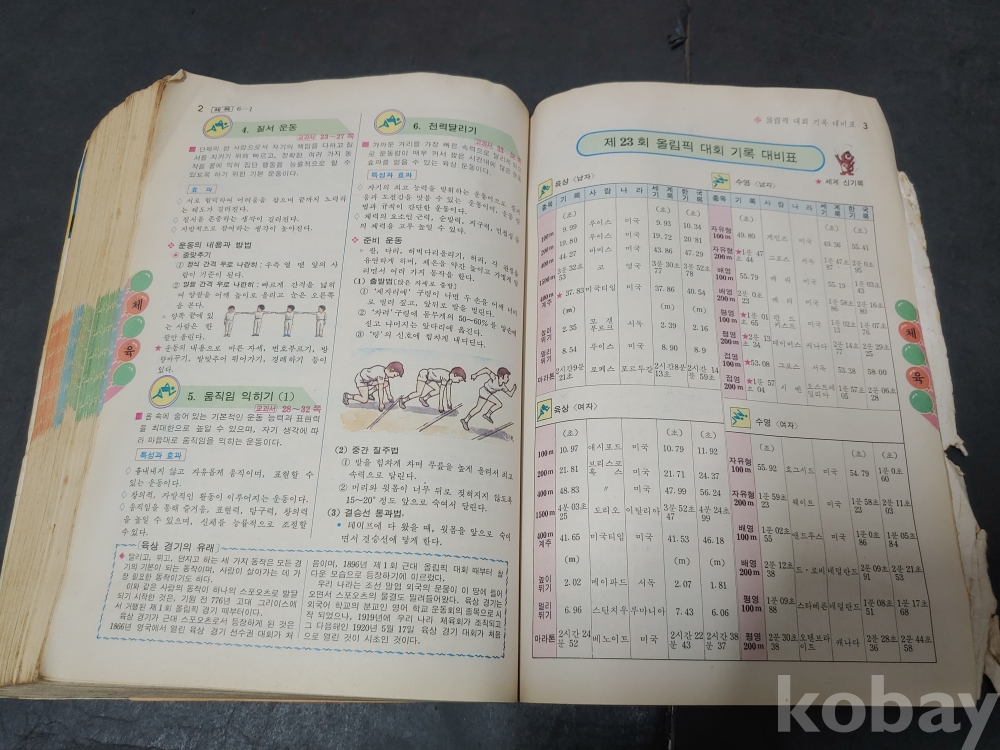 2 체육 6-1
4. 질서 운동
교과서 23~27 쪽
단체의 한 사람으로서 자기의 책임을 다하고 질
서를 지키기 위해 빠르고, 정확한 여러 가지 동
작을 몸에 익혀 집단 행동을 능률적으로 할 수
있도록 하기 위한 기본 운동이다.
효과
◇ 서로 협력하여 어려움을 참으며 끝까지 노력하
는 태도가 길러진다.
◇ 질서를 존중하는 생각이 길러진다.
◇ 자발적으로 참여하는 생각이 높아진다.
❖ 운동의 내용과 방법
줄맞추기
① 정식 간격 우로 나란히: 우측 열 맨 앞의 사
람이 기준이 된다.
② 좁은 간격 우로 나란히: 빠르게 간격을 넓히
며 양팔을 어깨 높이로 올리고 눈은 오른쪽
을 본다.
양쪽 끝에 있
는 사람은 한
팔만 올린다.
★ 운동의 내용으로 바른 자세, 번호부르기, 방
향바꾸기, 발맞추어 뛰어가기, 경례하기 등이
있다.
5. 움직임 익히기 (1)
교과서 28~32 쪽
몸 속에 숨어 있는 기본적인 운동 능력과 표현력
을 최대한으로 높일 수 있으며, 자기 생각에 따
라 마음대로 움직임을 익히는 운동이다.
특성과 효과
◇ 흉내내지 않고 자유롭게 움직이며, 표현할 수
있는 운동이다.
◇ 창의적, 자발적인 활동이 이루어지는 운동이다.
◇ 움직임을 통해 즐거움, 표현력, 탐구력, 창의력
을 높일 수 있으며, 신체를 능률적으로 조정할
수 있다.
6. 전력달리기
가까운 거리를 가장 빠른 속력으로 달리기
특성과 효과
◇ 자기의 최고 능력을 발휘하는 운동이므로
❖ 준비 운동
팔, 다리, 허벅다리올리기, 허리, 각 관절을
유연하게 하며, 체온을 약간 높이고 가볍게 달
리면서 여러 가지 동작을 한다.
(1) 출발법
① '제자리에' 구령이 나면 두 손을 어깨 너비
로 벌려 짚고, 앞뒤로 발을 벌린다.
② '차려' 구령에 몸무게의 50~60%를 앞손에
싣고 나머지는 앞다리에 옮긴다.
③ '땅'의 신호에 힘차게 내디딘다.
(2) 중간 질주법
① 발을 힘차게 차며 무릎을 높게 올려서 최고
속력으로 달린다.
② 머리와 윗몸이 너무 뒤로 젖혀지지 않도록
15~20° 정도 앞으로 숙여서 달린다.
(3) 결승선 통과법
테이프에 다 왔을 때, 윗몸을 앞으로 숙이
면서 결승선에 닿게 한다.
육상 경기의 유래
달리고, 뛰고, 던지고 하는 세 가지 동작은 모든 경
기의 기본이 되는 동작이며, 사람이 살아가는 데 가
장 필요한 동작이기도 하다.
이와 같은 사람의 동작이 하나의 스포츠로 발달
되기 시작한 것은, 기원 전 776년 고대 그리이스에
서 거행된 제 1회 올림픽 경기 때부터이다.
육상 경기가 근대 스포츠로서 등장하게 된 것은
1866년 영국에서 열린 육상 경기 선수권 대회가 처
음이며, 1896년 제 1회 근대 올림픽 대회 때부터 참
다운 모습으로 등장하기에 이르렀다.
우리 나라는 조선 말엽 외국의 문물이 이 땅에 들
어오면서 스포츠의 물결도 밀려들어왔다. 육상 경기는
외국어 학교의 분교인 영어 학교 운동회의 종목으로서
작 되었으나, 1919년에 우리 나라 체육회가 조직되고
그 다음해인 1920년 5월 17일 육상 경기 대회가 처음
으로 열린 것이 시초인 것이다.
체
육
❖ 올림픽 대회 기록 대비표 3
제 23 회 올림픽 대회 기록 대비표
★ 세계 신기록
육상 (남자)
종목 기록 사람 나라 세계기록 한국기록
(초) (초) (초)
100m 9.99 루이스 미국 9.93 10.34
200m 19.80 루이스 미국 19.72 20.81
400m 44.27 바비스 미국 43.86 47.29
1500m 3분32초53 코 영국 3분30초77 3분52초78
400m계주 ★37.83 미국티임 미국 37.86 40.54
(m) (m) (m)
높이뛰기 2.35 모겐부르크 서독 2.39 2.16
멀리뛰기 8.54 루이스 미국 8.90 8.9
마라톤 2시간9분21초 로페스 포르투갈 2시간8분13초 2시간14분59초
수영 (남자)
종목 기록 사람 나라 세계기록 한국기록
자유형100m 49.80 게인즈 미국 49.36 55.41
자유형200m ★1분47초44 그로스 서독
배영100m 55.79 케리 미국
배영200m 2분0초23 케리 미국
평영100m ★1분01초65 런드퀴스트 미국
평영200m ★2분13초34 데이비스 캐나다
접영100m ★53.08 그로스 서독 53.38 58.09
접영200m ★1분57초04 시벤
육상 (여자)
(초) (초) (초)
100m 10.97 애시포드 미국 10.79 11.92
200m 21.81 브리스코혹스 미국 21.71 24.37
400m 48.83 〃 미국 47.99 56.24
1500m 4분03초25 도리오 이탈리아 3분52초47 4분24초99
400m계주 41.65 미국티임 미국 41.53 46.18
(m) (m) (m)
높이뛰기 2.02 메이파드 서독 2.07 1.81
멀리뛰기 6.96 스탄치우 루마니아 7.43 6.06
마라톤 2시간24분52 베노이트 미국 2시간22분43 2시간38분37
수영 (여자)
(초) (초) (초)
자유형100m 55.92 호그시드 미국 54.79 1분0초60
자유형200m 1분59초23 웨이트 미국 1분58초23 2분11초03
배영100m 1분02초55 앤드루스 미국
배영200m 2분12초38
평영100m 1분09초88 스타베른 네덜란드 1분08초51 1분17초68
평영200m 2분30초38 오텐브라이트 캐나다 2분28초36 2분44초58
체
육
kobay